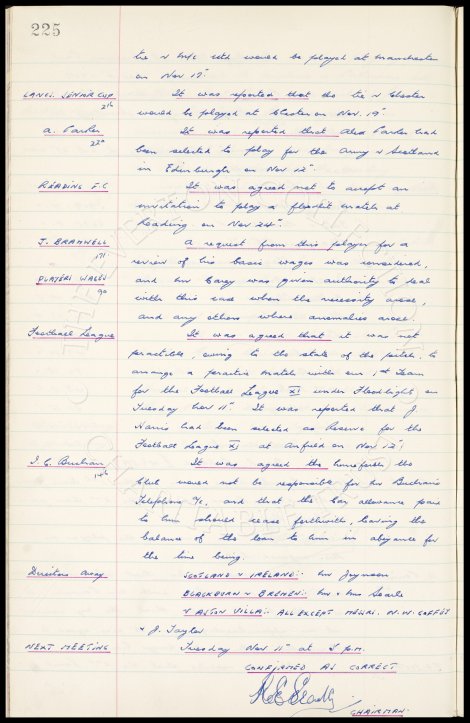 225
tie v M/c Utd would be played at Manchester
on Nov 17th
LANCS. SENIOR CUP
216
It was reported that the tie v Chester
would be played at Chester on Nov. 19th
A. Parker
220
It was reported that Alex Parker had
been selected to play for the Army v Scotland
in Edinburgh on Nov 12th
READING F.C
It was agreed not to accept an
invitation to play a floodlit match at
Reading on Nov 24th
J. BRAMWELL
171
A request from this player for a
review of his basic wages was considered,
PLAYERS WAGES
90
and Mr Carey was given authority to deal
with this case when the necessity arose,
and any others where anomalies arose.
Football League
It was agreed that it was not
practicable, owing to the state of the pitch, to
arrange a practice match with our 1st Team
for the Football League XI under Floodlights on
Tuesday Nov 11th It was reported that J.
Harris had been selected as Reserve for the
Football League XI at Anfield on Nov 12th
I. C. Buchan
It was agreed the henceforth the
Club would not be responsible for Mr Buchan's
Telephone a/c, and that the Car allowance paid
to him should cease forthwith, leaving the
balance of the loan to him in abeyance for
the time being.
Directors away
SCOTLAND v IRELAND:- Mr
BLACKBURN v BREMEN:- Mr & Mrs Searle
v ASTON VILLA:- ALL EXCEPT MESSRS. N.W. COFFEY
& J. Taylor
NEXT MEETING
Tuesday Nov 11th at 5 p.m.
CONFIRMED AS CORRECT
CHAIRMAN.